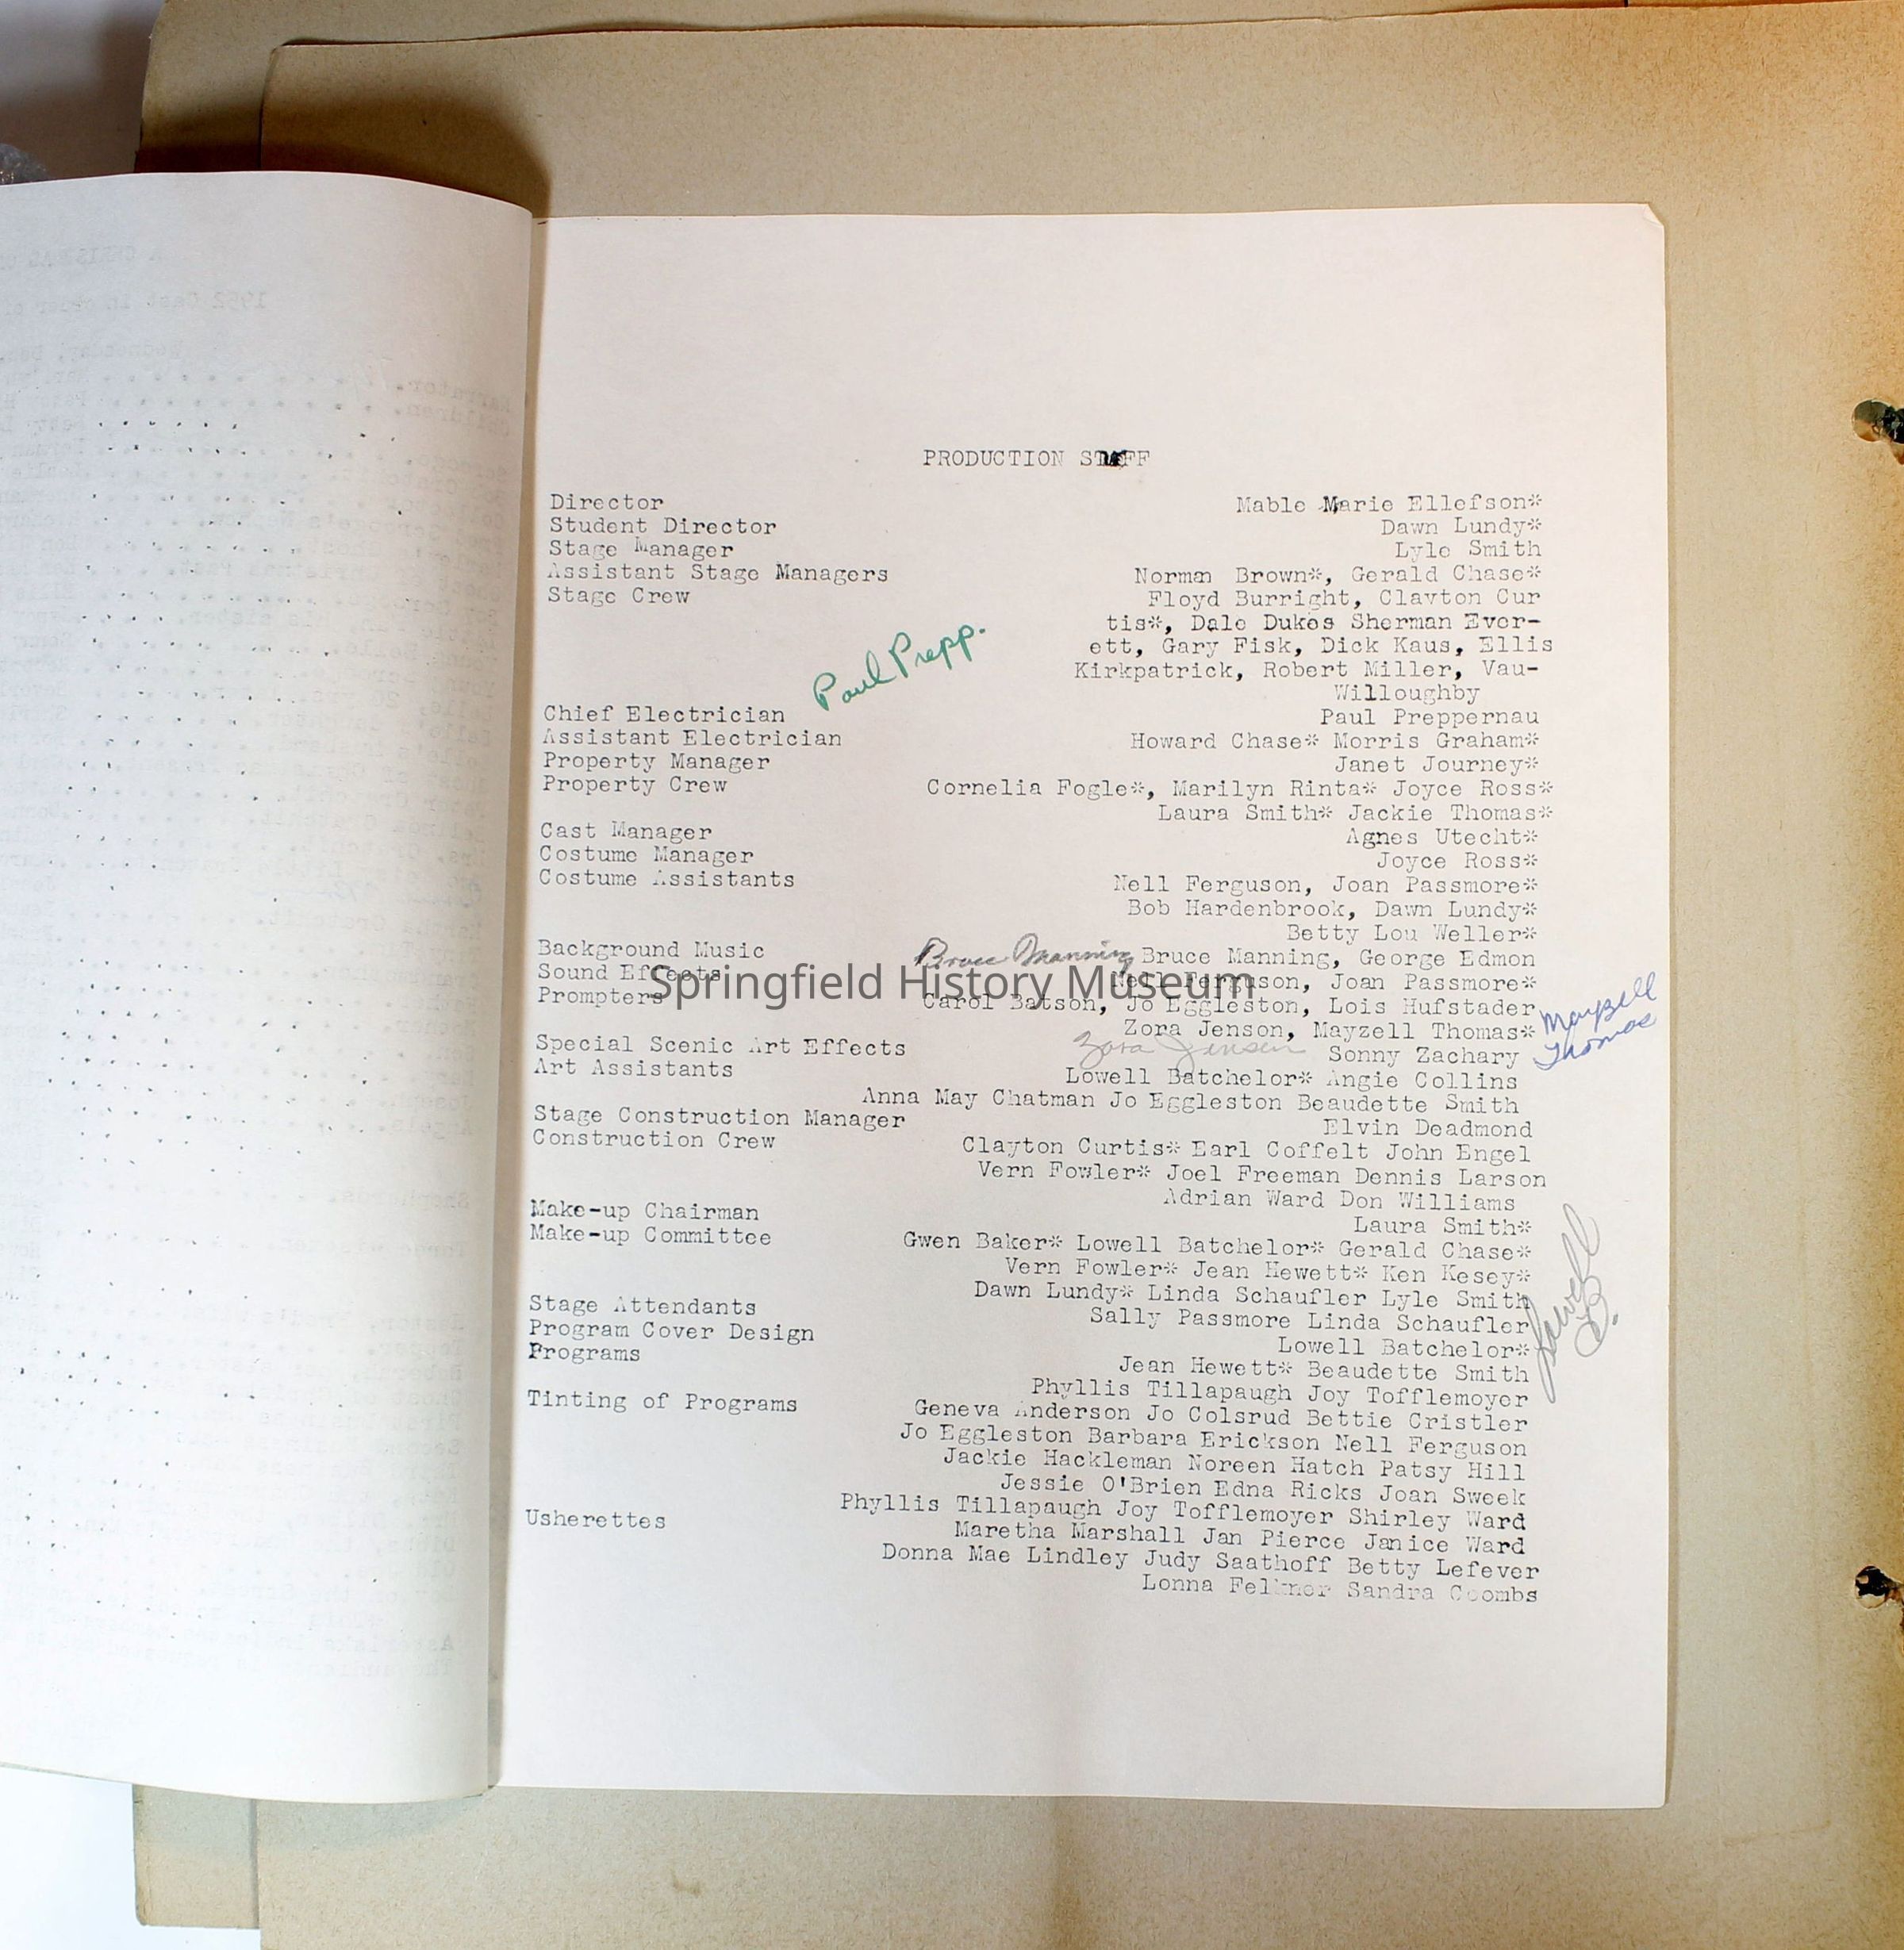 PRODUCTION STAFF
Director Mable Marie Ellefson*
Student Director Dawn Lundy*
Stage Manager Lyle Smith
Assistant Stage Managers Norman Brown*, Gerald Chase*
Stage Crew Floyd Burright, Clayton Cur
tis*, Dale Dukes Sherman Ever-
ett, Gary Fisk, Dick Kaus, Ellis
Paul Prepp.
Kirkpatrick, Robert Miller, Vau-
Willoughby
Chief Electrician Paul Preppernau
Assistant Electrician Howard Chase* Morris Graham*
Property Manager Janet Journey*
Property Crew Cornelia Fogle*, Marilyn Rinta* Joyce Ross*
Laura Smith* Jackie Thomas*
Cast Manager Agnes Utecht*
Costume Manager Joyce Ross*
Costume Assistants Nell Ferguson, Joan Passmore*
Bob Hardenbrook, Dawn Lundy*
Betty Lou Weller*
Background Music Bruce Manning Bruce Manning, George Edmon
Sound Effects Nell Ferguson, Joan Passmore*
Springfield History Museum
Prompters Carol Batson, Jo Eggleston, Lois Hufstader
Zora Jenson, Mayzell Thomas*
Mayzell
Thomas
Zora Jensen
Special Scenic Art Effects Sonny Zachary
Art Assistants Lowell Batchelor* Angie Collins
Anna May Chatman Jo Eggleston Beaudette Smith
Stage Construction Manager Elvin Deadmond
Construction Crew Clayton Curtis* Earl Coffelt John Engel
Vern Fowler* Joel Freeman Dennis Larson
Adrian Ward Don Williams
Make-up Chairman Laura Smith*
Make-up Committee Gwen Baker* Lowell Batchelor* Gerald Chase*
Vern Fowler* Jean Hewett* Ken Kesey*
Dawn Lundy* Linda Schaufler Lyle Smith
Stage Attendants Sally Passmore Linda Schaufler
Program Cover Design Lowell Batchelor*
Lowell B.
Programs Jean Hewett* Beaudette Smith
Phyllis Tillapaugh Joy Tofflemoyer
Tinting of Programs Geneva Anderson Jo Colsrud Bettie Cristler
Jo Eggleston Barbara Erickson Nell Ferguson
Jackie Hackleman Noreen Hatch Patsy Hill
Jessie O'Brien Edna Ricks Joan Sweek
Phyllis Tillapaugh Joy Tofflemoyer Shirley Ward
Usherettes Maretha Marshall Jan Pierce Janice Ward
Donna Mae Lindley Judy Saathoff Betty Lefever
Lonna Felkner Sandra Coombs